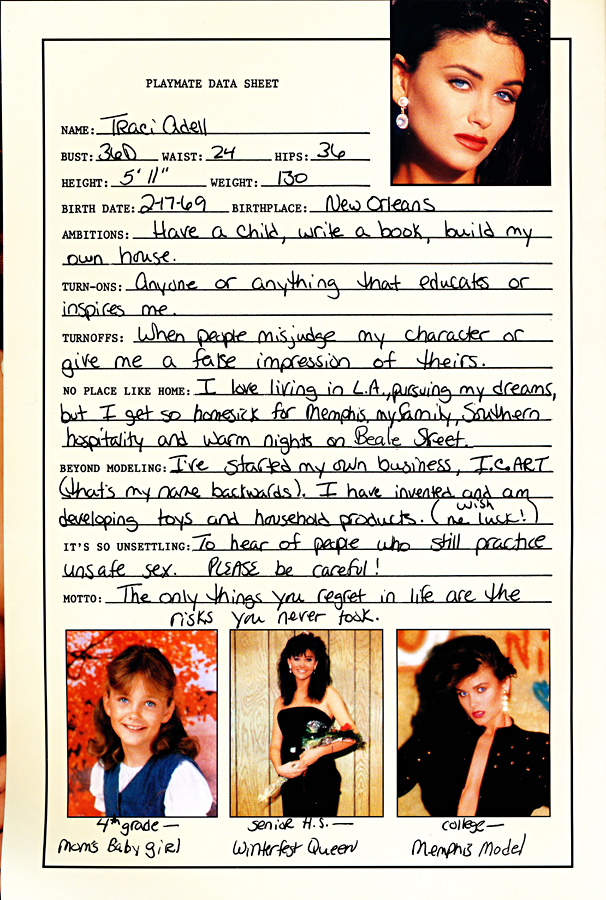 PLAYMATE DATA SHEET
NAME: Traci Adell
BUST: 36D WAIST: 24 HIPS: 36
HEIGHT: 5' 11" WEIGHT: 130
BIRTH DATE: 2-17-69 BIRTHPLACE: New Orleans
AMBITIONS: Have a child, write a book, build my
own house.
TURN-ONS: Anyone or anything that educates or
inspires me.
TURNOFFS: When people misjudge my character or
give me a false impression of theirs.
NO PLACE LIKE HOME: I love living in L.A., pursuing my dreams,
but I get so homesick for Memphis, my family, Southern
hospitality and warm nights on Beale Street.
BEYOND MODELING: I've started my own business, I.C. ART
(that's my name backwards). I have invented and am
developing toys and household products. (wish me luck!)
IT'S SO UNSETTLING: To hear of people who still practice
unsafe sex. PLEASE be careful!
MOTTO: The only things you regret in life are the
risks you never took.
4th grade —
Mom's Baby girl
senior H.S. —
Winterfest Queen
college —
Memphis Model